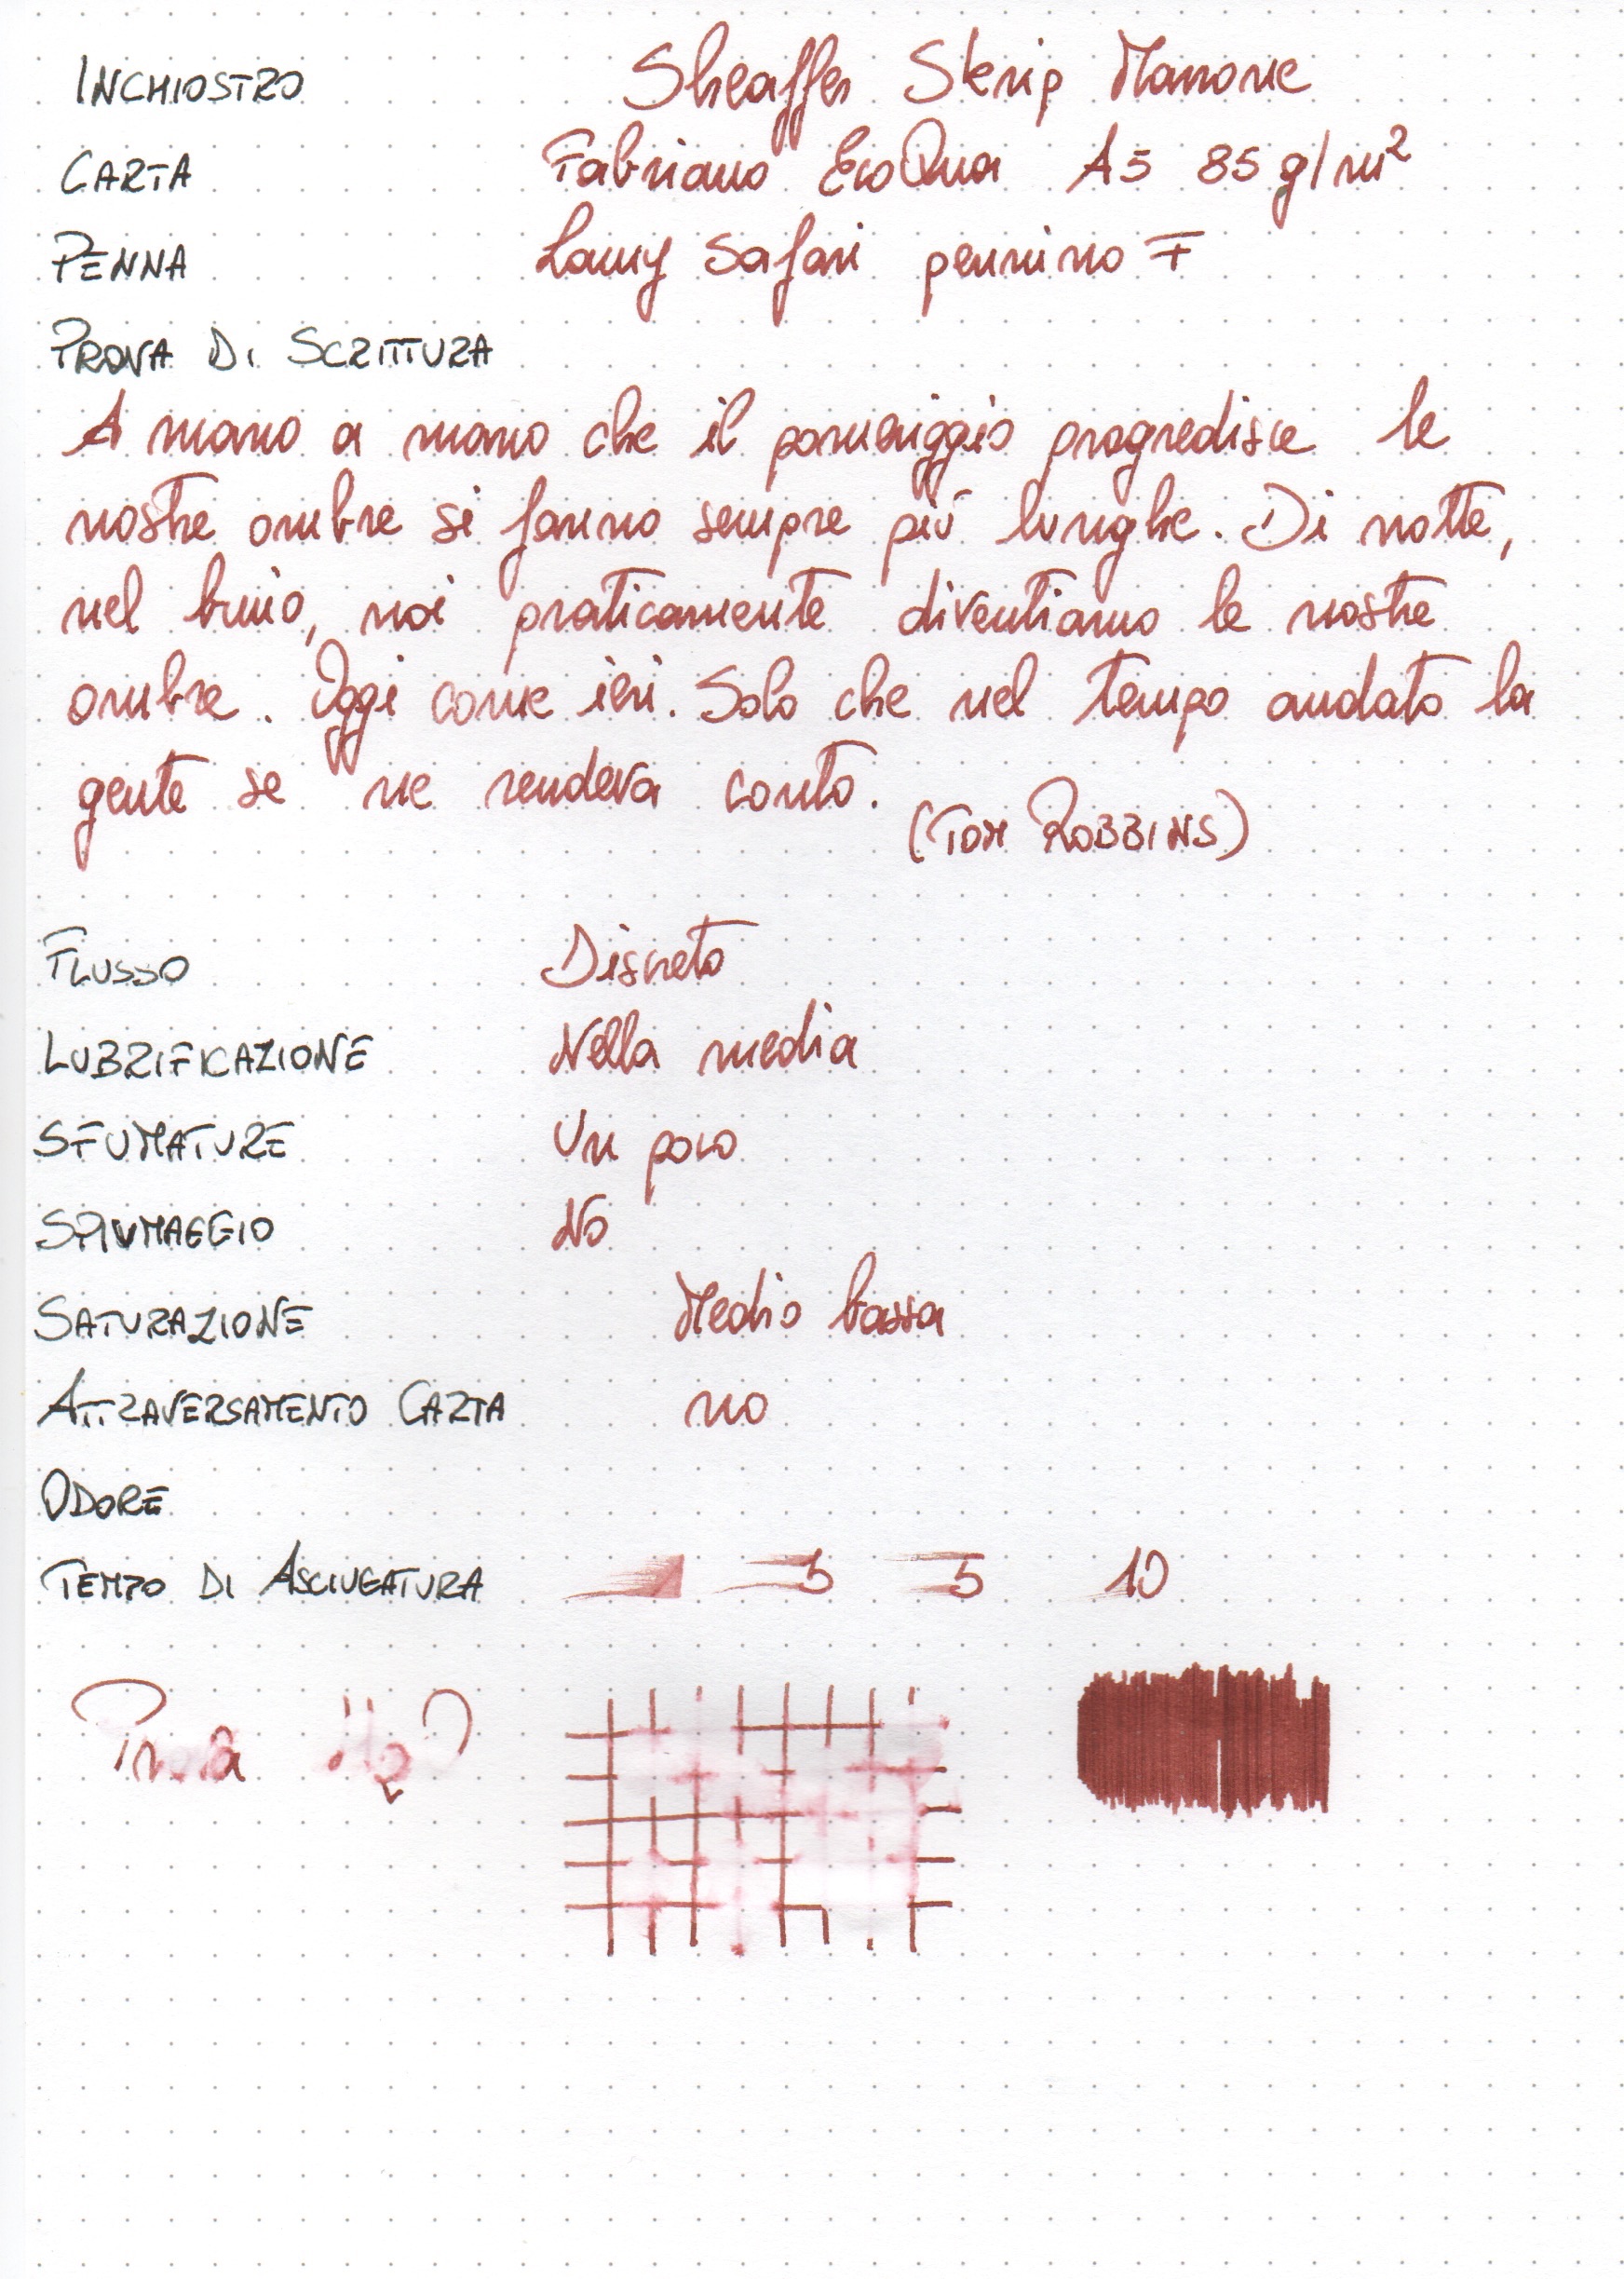 INCHIOSTRO Sheaffer Skrip Marrone
CARTA Fabriano EcoQua A5 85 g/m²
PENNA Lamy Safari pennino F
PROVA DI SCRITTURA
A mano a mano che il pomeriggio progredisce le
nostre ombre si fanno sempre più lunghe. Di notte,
nel buio, noi praticamente diventiamo le nostre
ombre. Oggi come ieri. Solo che nel tempo andato la
gente se ne rendeva conto.
(TOM ROBBINS)
FLUSSO Discreto
LUBRIFICAZIONE Nella media
SFUMATURE Un poco
SPIUMAGGIO No
SATURAZIONE Medio bassa
ATTRAVERSAMENTO CARTA no
ODORE
TEMPO DI ASCIUGATURA 3 5 10
Prova H₂O